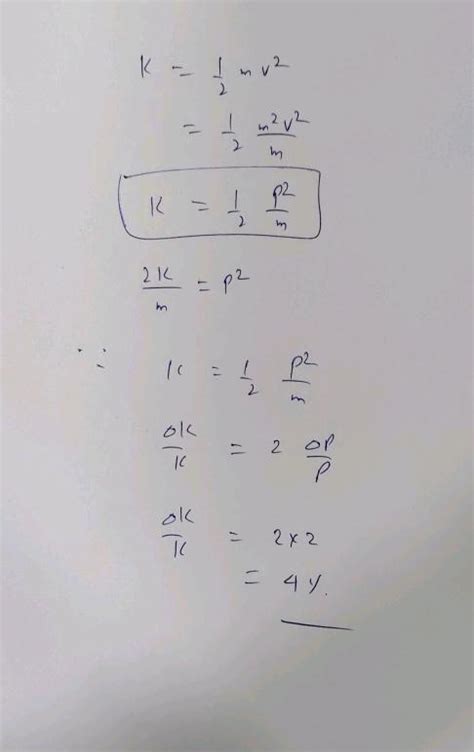 K = 1/2 m v²
= 1/2 m²v²/m
K = 1/2 p²/m
2K/m = p²
∵ K = 1/2 p²/m
ΔK/K = 2 ΔP/P
ΔK/K = 2×2
= 4%